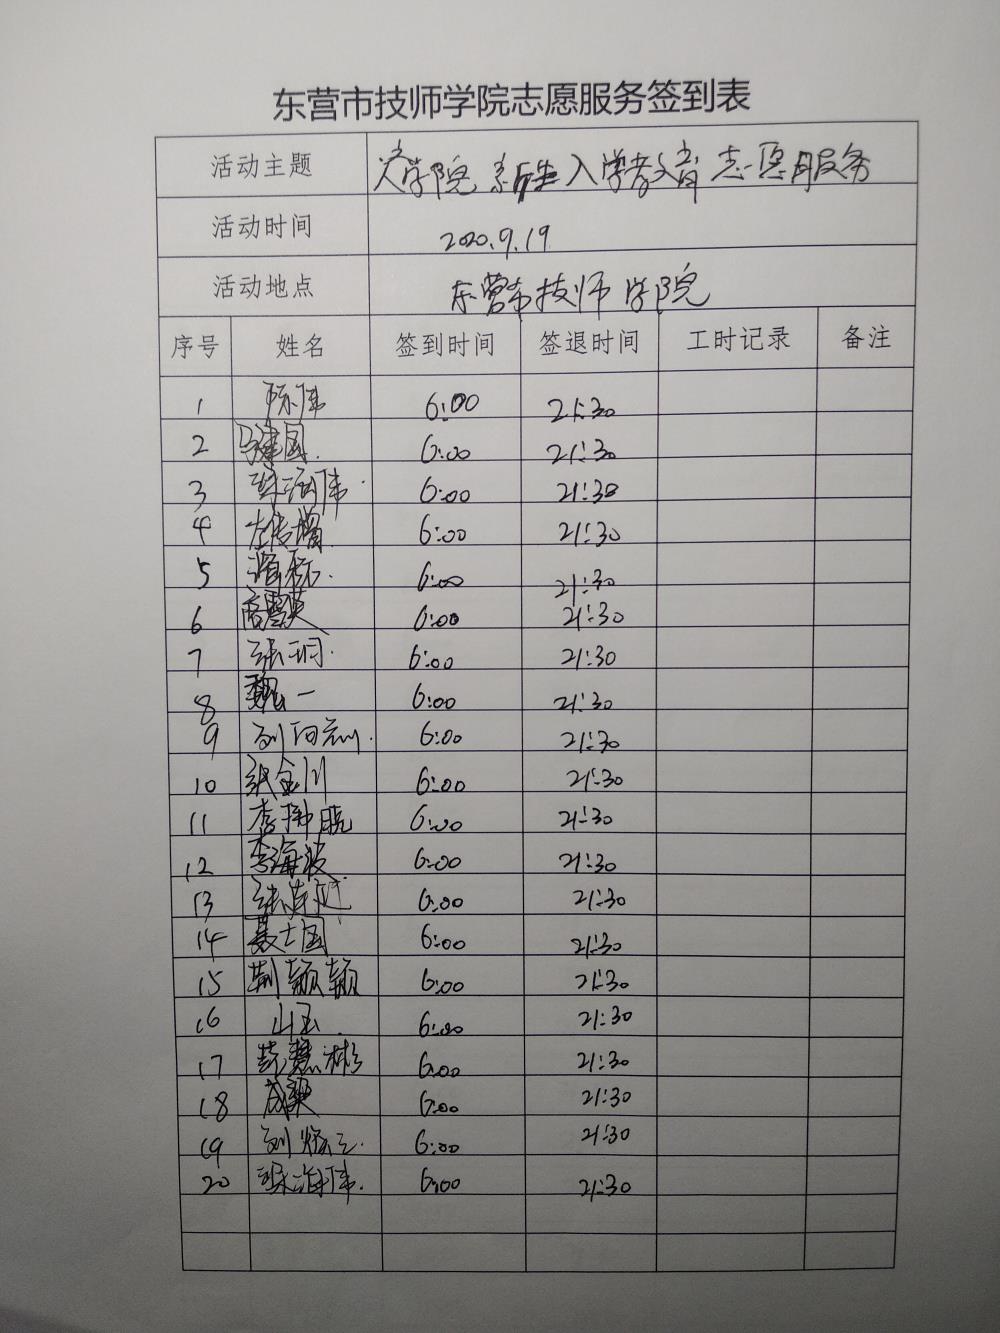 东营市技师学院志愿服务签到表
活动主题 学院 新生入学教育志愿服务
活动时间 2020.9.19
活动地点 东营市技师学院
序号 姓名 签到时间 签退时间 工时记录 备注
1 陈伟 6:00 21:30
2 马建国 6:00 21:30
3 6:00 21:30
4 左传增 6:00 21:30
5 6:00 21:30
6 商雪英 6:00 21:30
7 张珂 6:00 21:30
8 魏一 6:00 21:30
9 刘 6:00 21:30
10 张金川 6:00 21:30
11 李 6:00 21:30
12 李海波 6:00 21:30
13 张 6:00 21:30
14 聂士国 6:00 21:30
15 荆颖颖 6:00 21:30
16 山玉 6:00 21:30
17 彭慧彬 6:00 21:30
18 成梁 6:00 21:30
19 刘 6:00 21:30
20 6:00 21:30